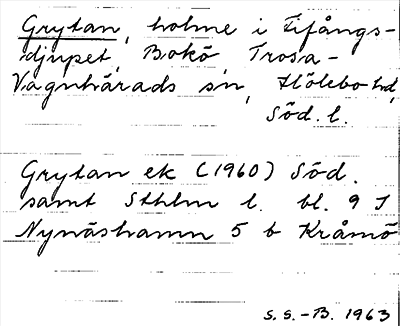 Grytan, holme i Fifångs-
djupet, Bokö, Trosa-
Vagnhärads sn, Hölebo hd,
Söd. l.
Grytan ek (1960) Söd.
samt Sthlm l. bl. 9 I
Nynäshamn 5 b Kråmö
S.S.-B. 1963